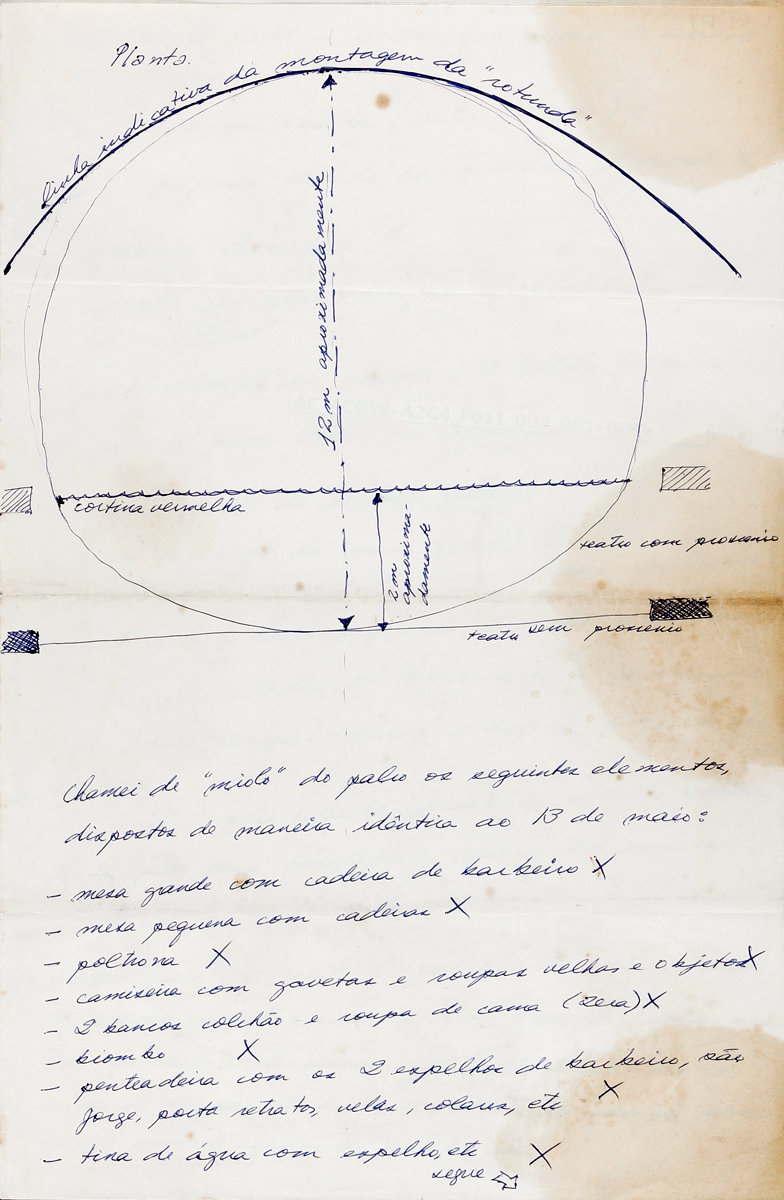 Planta.
linha indicativa da montagem da "rotunda"
12 m aproximadamente
cortina vermelha
2 m
aproxima-
damente
teatro com proscenio
teatro sem proscenio
Chamei de "miolo" do palco os seguintes elementos,
dispostos de maneira idêntica ao 13 de maio:
- mesa grande com cadeira de barbeiro X
- mesa pequena com cadeiras X
- poltrona X
- camiseira com gavetas e roupas velhas e objetos X
- 2 bancos colchão e roupa de cama (Zera) X
- biombo X
- penteadeira com os 2 espelhos de barbeiro, são
Jorge, porta retratos, velas, colares, etc X
- tina de água com espelho, etc X
segue